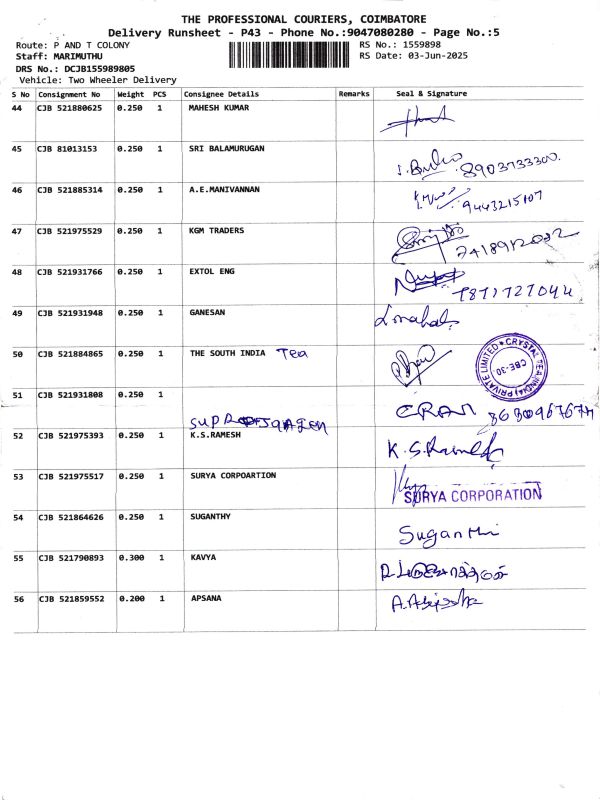 THE PROFESSIONAL COURIERS, COIMBATORE
Delivery Runsheet - P43 - Phone No.:9047080280 - Page No.:5
Route: P AND T COLONY
RS No.: 1559898
Staff: MARIMUTHU
RS Date: 03-Jun-2025
DRS No.: DCJB155989805
Vehicle: Two Wheeler Delivery
S No Consignment No Weight PCS Consignee Details Remarks Seal & Signature
44 CJB 521880625 0.250 1 MAHESH KUMAR
45 CJB 81013153 0.250 1 SRI BALAMURUGAN
8903733300.
46 CJB 521885314 0.250 1 A.E.MANIVANNAN
9443215107
47 CJB 521975529 0.250 1 KGM TRADERS
48 CJB 521931766 0.250 1 EXTOL ENG
7871727044
49 CJB 521931948 0.250 1 GANESAN
50 CJB 521884865 0.250 1 THE SOUTH INDIA Tea
CRYSTAL TEA (INDIA) PRIVATE LIMITED
CBE-30
51 CJB 521931808 0.250 1
52 CJB 521975393 0.250 1 K.S.RAMESH
K.S.Ramesh
53 CJB 521975517 0.250 1 SURYA CORPOARTION
SURYA CORPORATION
54 CJB 521864626 0.250 1 SUGANTHY
Suganthi
55 CJB 521790893 0.300 1 KAVYA
56 CJB 521859552 0.200 1 APSANA